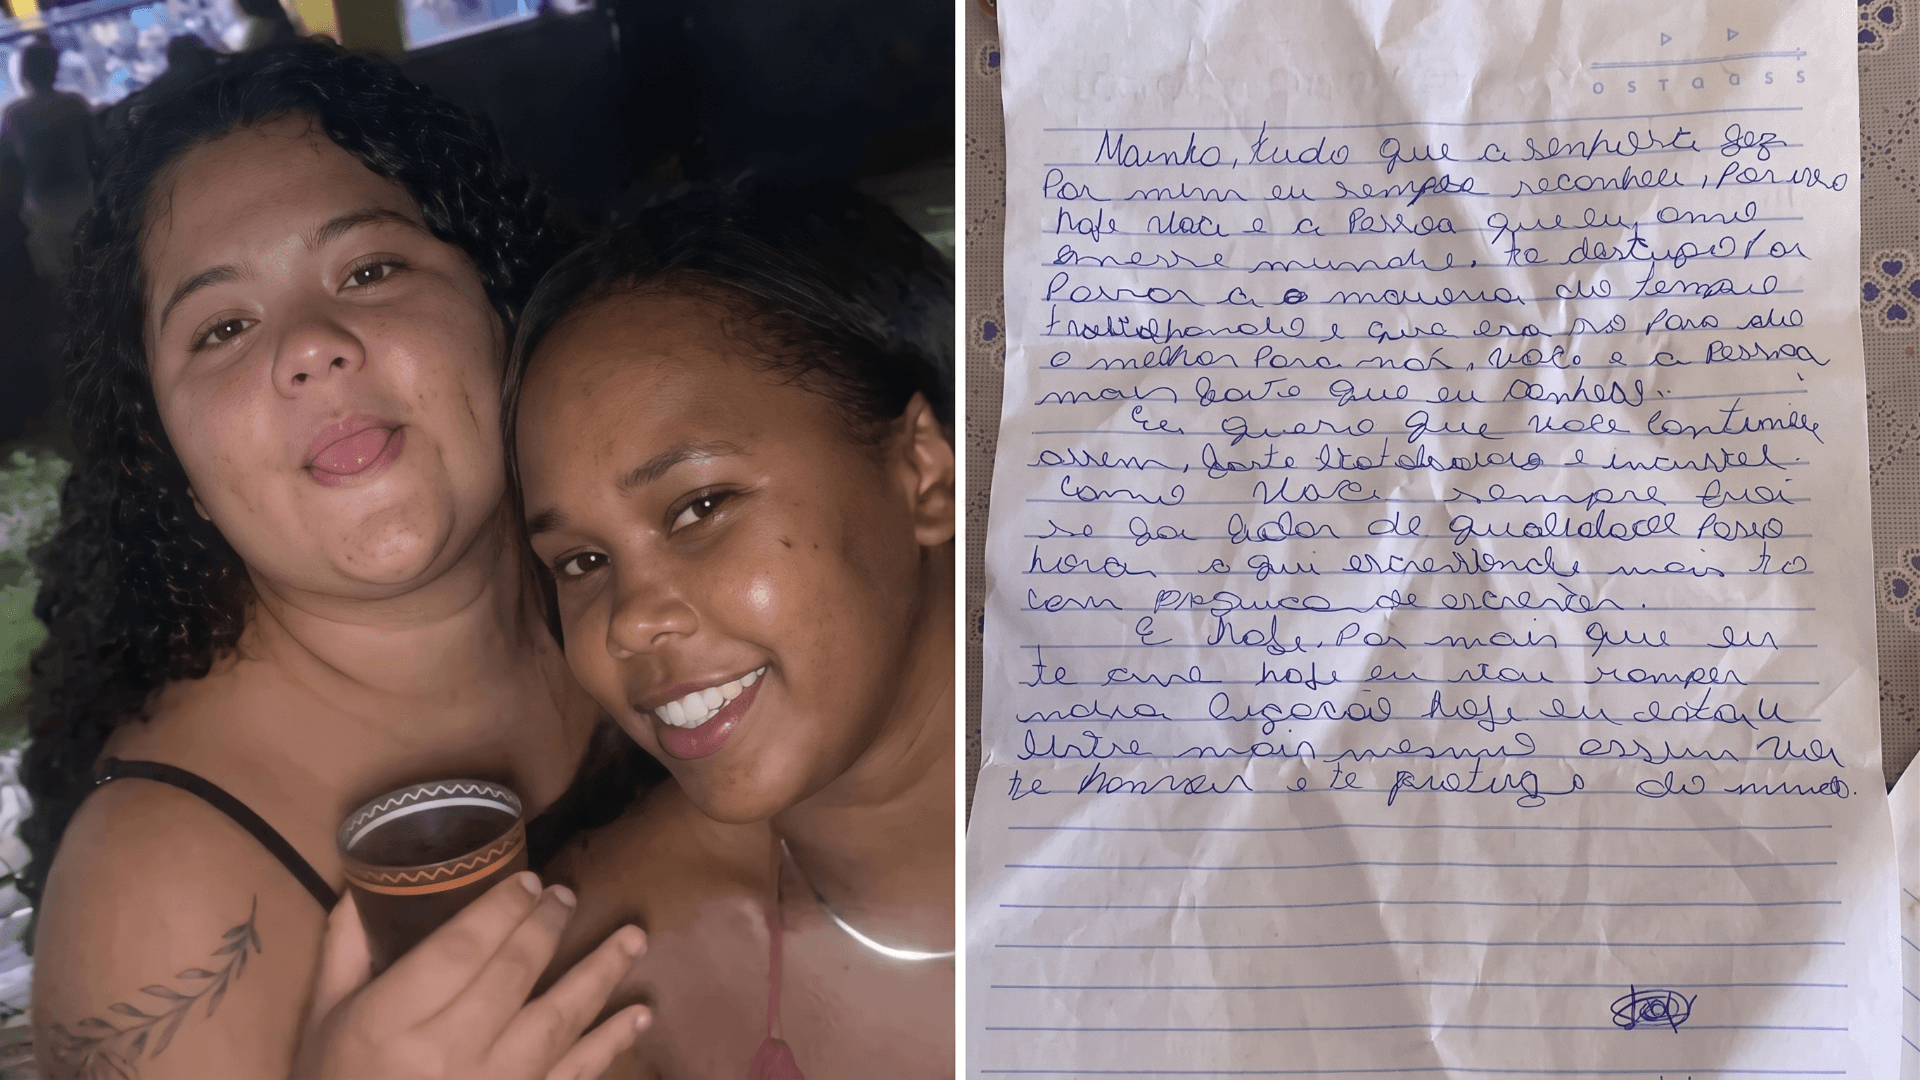 Mainha, tudo que a senhora fez
por mim eu sempre reconheci, por isso
hoje você e a Pessoa que eu amo
em esse mundo. te desculpo Por
a maioria do tempo
trabalhando e que era só Para
o melhor Para nós, você e a Pessoa
mais forte que eu conheço..
Eu quero que você continue
assim, forte e incrivel.
Como você sempre
se for falar de qualidade Passo
hora a qui escrevendo mais to
com preguiça de escrever.
E hoje, Por mais que eu
te ame hoje eu vou romper
nossa ligação hoje eu estou
triste mais mesmo assim vou
te honrar e te protejo do mundo.